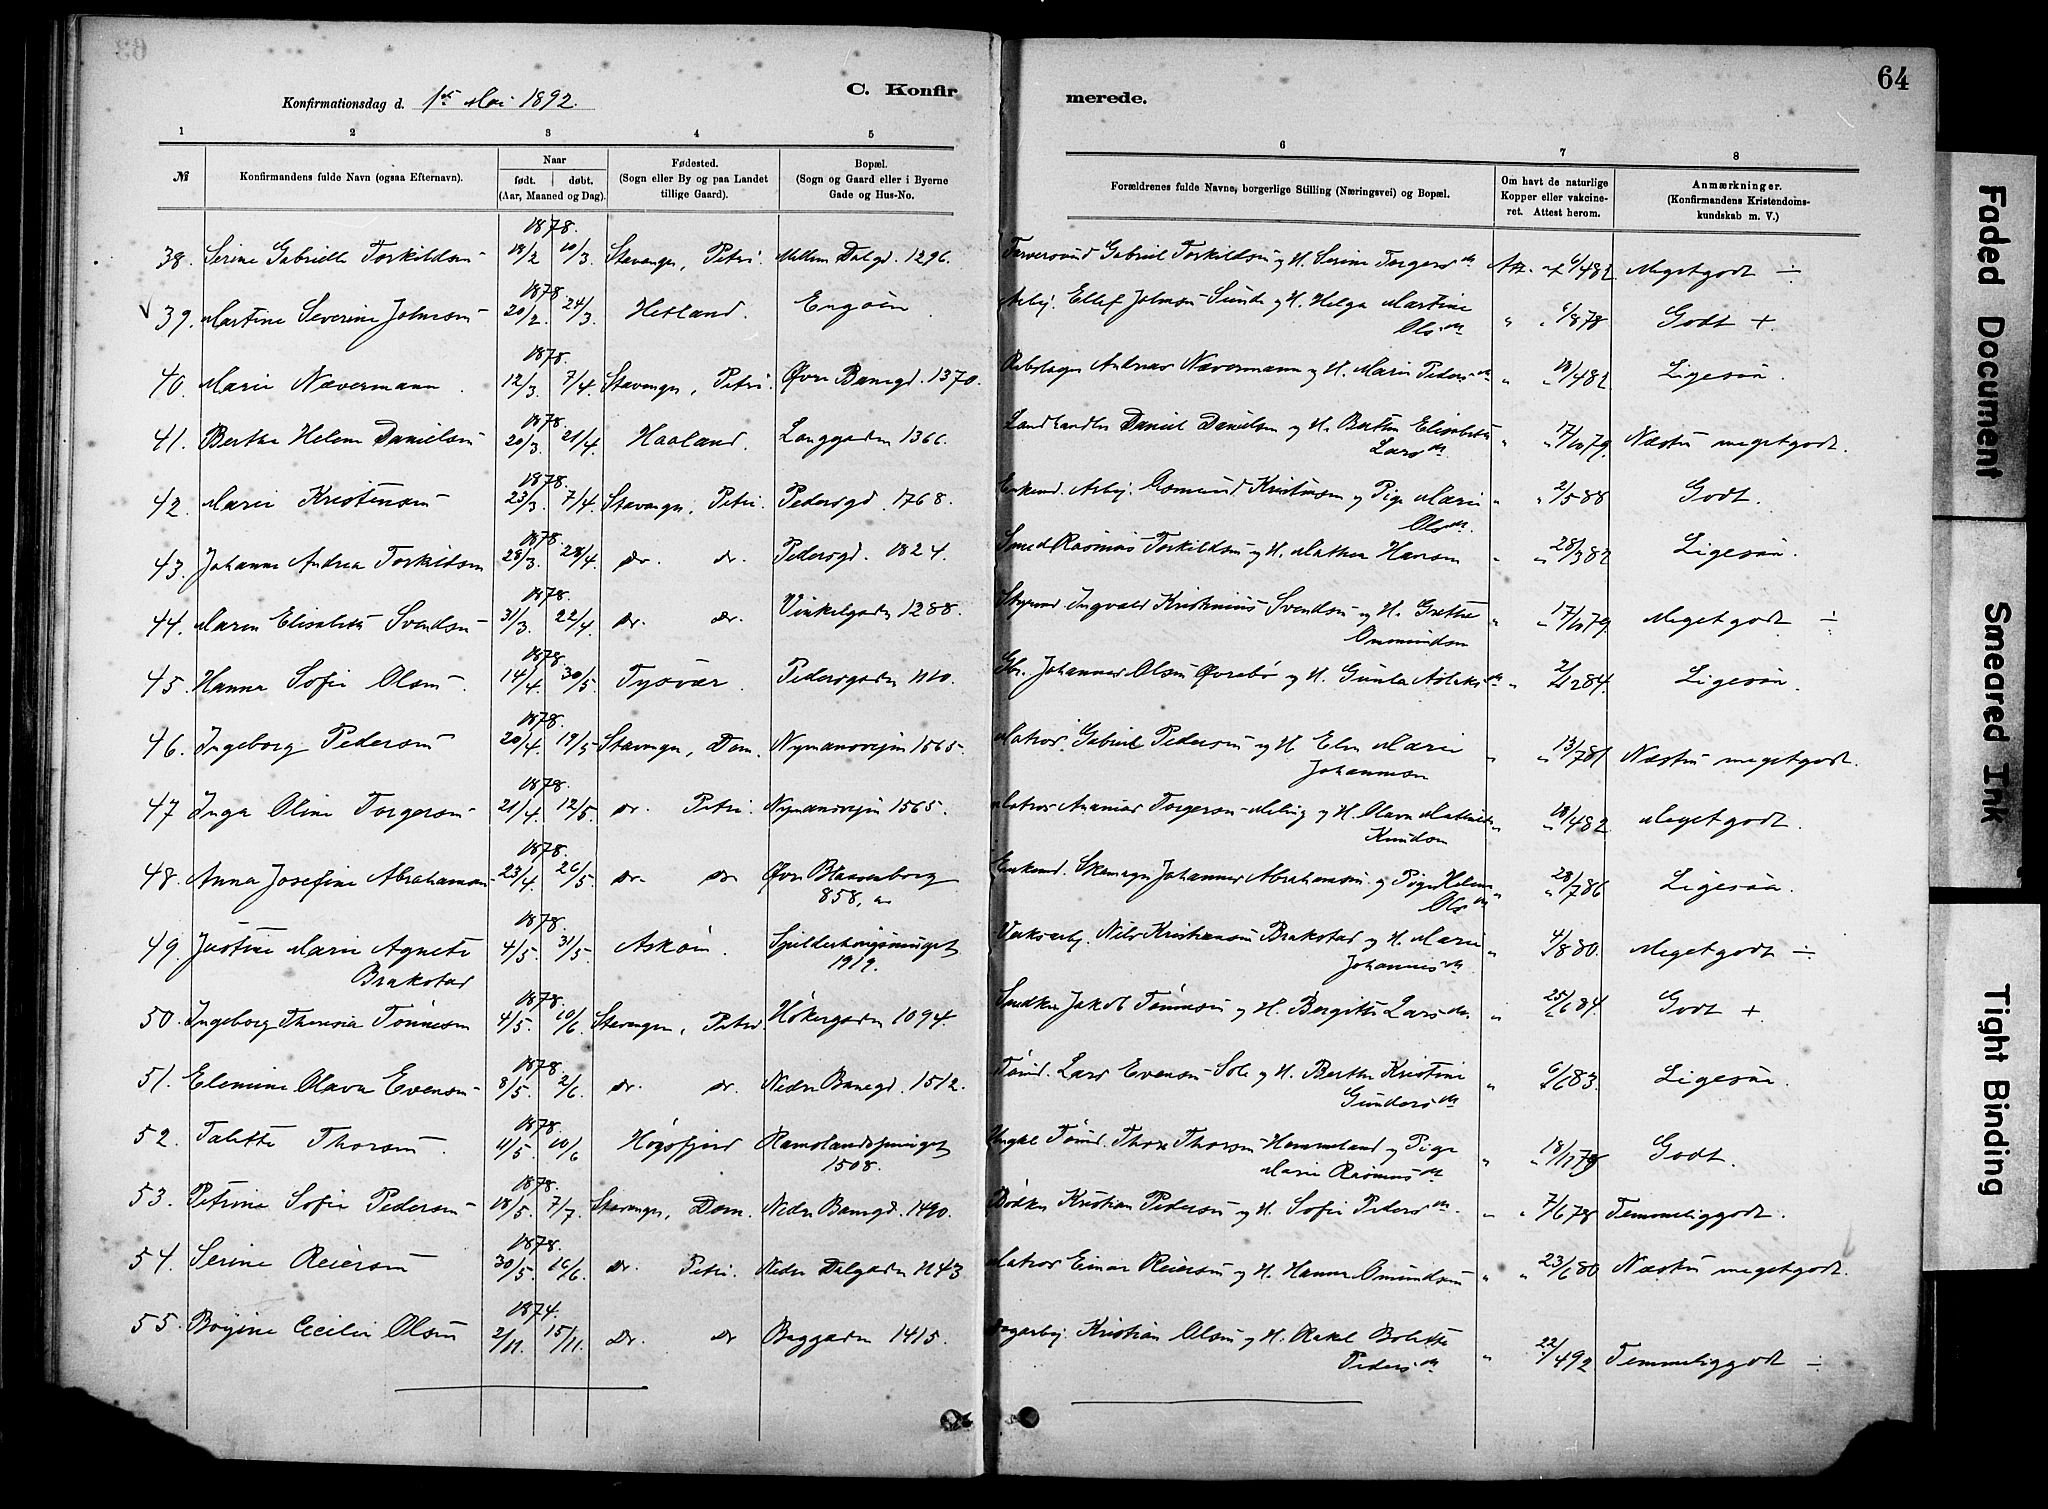 64
Konfirmationsdag d. 1ste Mai 1892.
C. Konfirmerede.
1 2 3 4 5 6 7 8
№
Konfirmandens fulde Navn (ogsaa Efternavn).
Naar
født. døbt.
(Aar, Maaned og Dag).
Fødested.
(Sogn eller By og paa Landet
tillige Gaard).
Bopæl.
(Sogn og Gaard eller i Byerne
Gade og Hus-No.
Forældrenes fulde Navne, borgerlige Stilling (Næringsvei) og Bopæl.
Om havt de naturlige
Kopper eller vakcine-
ret. Attest herom.
Anmærkninger.
(Konfirmandens Kristendoms-
kundskab m. V.)
1878.
38. Serine Gabrielle Torkildsen 18/2 10/3. Stavanger, Petri Mellem Dalgd. 1296. Gabriel Torkildsen og H. Serine Torgersdtr Att. af 6/4 82 Megetgodt ÷
1878.
39. Martine Severine Johnsen 20/2. 24/3 Hetland. Engøen Arbj. Ellef Johnsen Sunde og H. Helga Martine
Olsdtr " " 6/8 78 Godt +
1878.
40. Marie Nævermann. 12/3. 7/4. Stavanger, Petri. Øvre Banegd. 1370. Rebslager Andreas Nævermann og H. Marie Pedersdtr " " 18/4 82 Ligesaa.
1878
41. Berthe Helene Danielsen 20/3. 21/4. Haaland. Langgaden 1366. Landhandler Daniel Danielsen og H. Berthe Elisabeth
Larsdtr " " 17/10 79. Næsten megetgodt.
1878.
42. Marie Kristensen 23/3. 7/4. Stavanger, Petri. Pedersgd. 1768. Enkemd. Arbj. Osmund Kristensen og Pige Marie
Olsdtr. " " 2/5 88 Godt.
1878.
43. Johanne Andrea Torkildsen 28/3. 28/4. do. do. Pedersgd. 1824. Smed Rasmus Torkildsen og H. Mathea Hansen " " 28/3 82 Ligesaa.
1878.
44. Maren Elisabeth Svendsen 31/3. 22/4. do. do. Vinkelgaden 1288. Styrmd. Ingvald Kristinius Svendsen og H. Grethe
Ommundsen " " 17/10 79. Megetgodt ÷
1878
45. Hanna Sofie Olsen. 14/4 30/5 Tysvær. Pedersgaden 1110. Gbr. Johannes Olsen Øvrebø og H. Gunla Aslaksdtr " " 84. Ligesaa.
1878.
46. Ingeborg Pedersen 20/4. 19/5 Stavanger, Dom. Nymansveien 1565. Matros Gabriel Pedersen og H. Elen Marie
Johannesen " " 13/7 81 Næsten megetgodt.
1878
47 Inga Oline Torgersen 21/4. 12/5. do. Petri Nymansveien 1565. Matros Ananias Torgersen Meling og H. Olava Mathilde
Knudsen " " 18/4 82. Megetgodt.
1878.
48. Anna Josefine Abrahamsen 23/4. 26/5. do. do Øvre Blaasenborg
858, a Enkemd. Johannes Abrahamsen og Pige Helene
Olsdtr " " 28/7 86 Ligesaa.
1878.
49. Justine Marie Agnete
Brakstad 4/5. 31/5. Askøen. Spilderhaugsmuget
1919. Verksarbj. Nils Kristensen Brakstad og H. Marie
Johannesdtr " 4/8 80. Megetgodt ÷
1878
50. Ingeborg Theresia Tønnesen 4/5. 10/6 Stavanger, Petri. Høkergaden 1094. Snedker Jakob Tønnesen og H. Bergitte Larsdtr. " 25/6 84. Godt +
1878.
51. Elemine Olava Evensen 8/5. 2/6 do do. Nedre Banegd. 1512. Tømd. Lars Evensen Sole og H. Berthe Kristine
Gundersdtr " 6/6 83. Ligesaa.
1878.
52. Talette Thorsen. 11/5. 10/6 Høgsfjord Ramslandssmuget
1508. Ungkl Tømd. Thore Thorsen Hammeland og Pige
Marie Rasmusdtr " " 18/11 79 Godt.
1878.
53. Petrine Sofie Pedersen 18/5. 7/7. Stavanger, Dom. Nedre Banegd. 1490. Bødker Kristian Pedersen og H. Sofie Pedersdtr. " " 7/6 78 Temmeliggodt.
1878.
54. Serine Reiersen 30/5. 16/6. do. Petri. Nedre Dalgaden 1143 Matros Einar Reiersen og H. Hanna Omundsen " " 23/6 80 Næsten megetgodt.
1874.
55. Boyine Cecilie Olsen 2/11. 15/11. Do. Do Baggaden 1415. Dagarbj. Kristian Olsen og H. Rakel Bolette
Pedersdtr " 22/4 92 Temmeliggodt ÷
Faded Document
Smeared Ink
Tight Binding